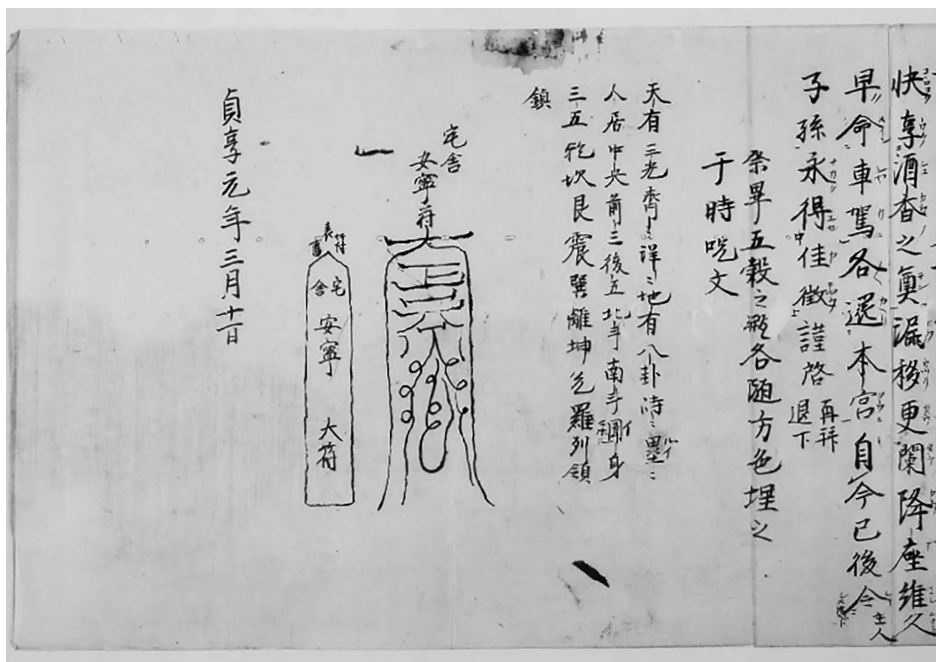 快享酒香之奠漏移更闌降座維久
早命車駕各還本宮自今已後令主人
子孫永得佳徵謹啓再拜退下
祭畢五穀之瓶各随方色埋之
于時呪文
天有三光齊〻詳〻地有八卦済〻
人居中央前三後五北斗南斗身
三五乾坎艮震巽離坤兌羅列領
鎮
宅舍
安寧符
符
表書
宅舍安寧 大符
貞享元年三月十一日